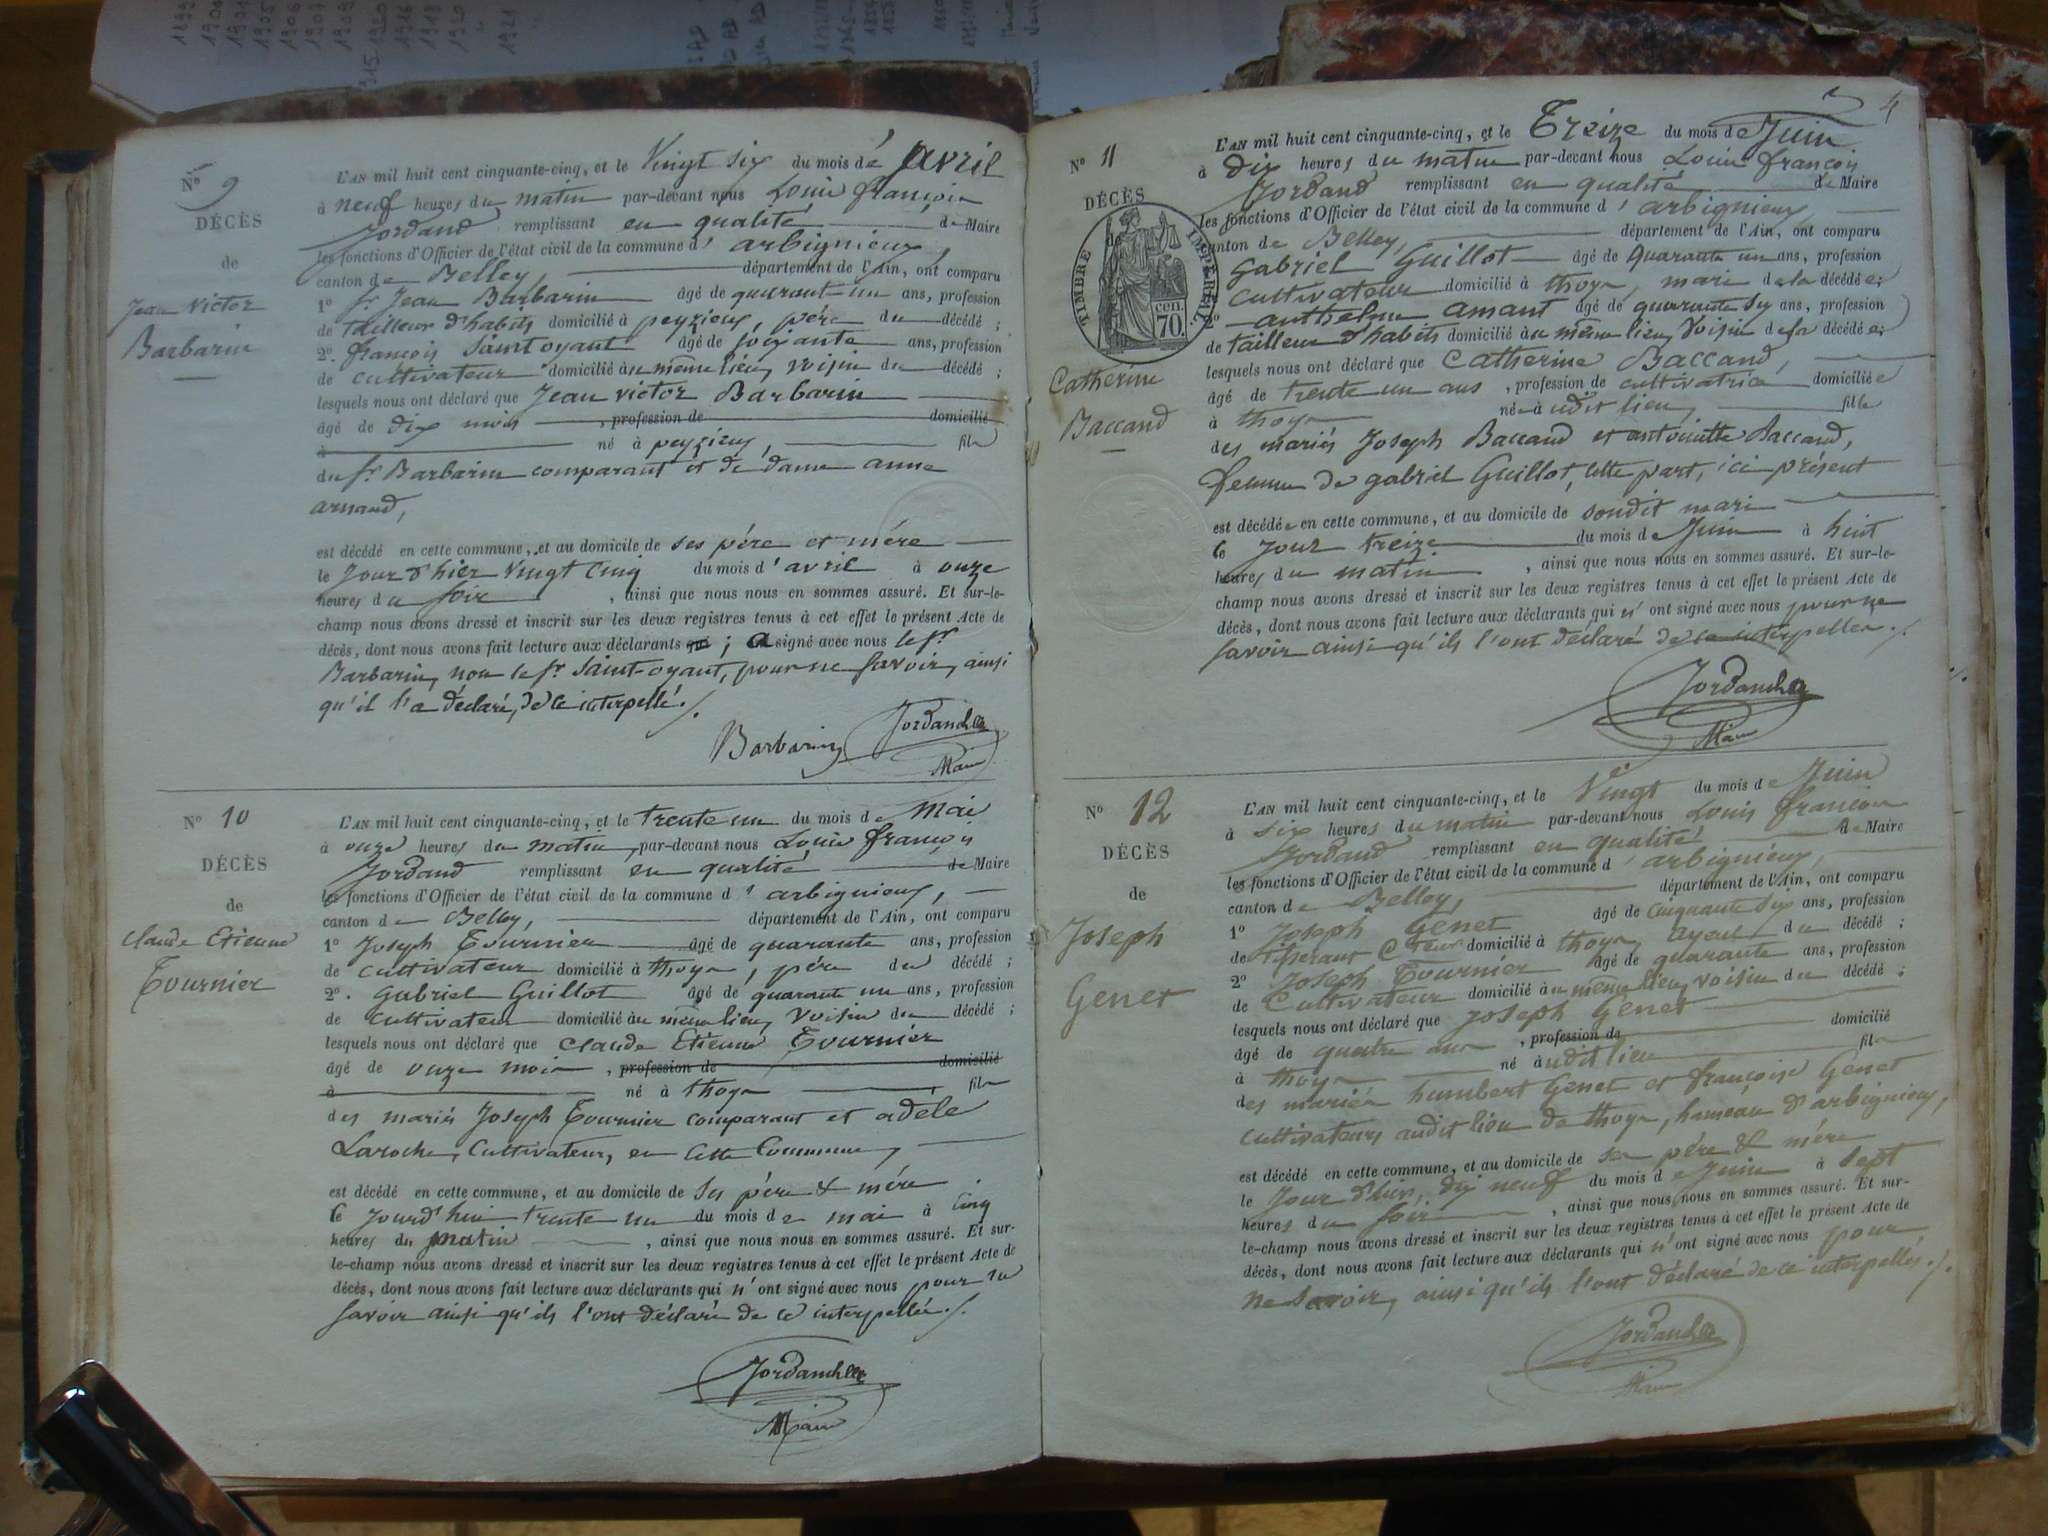 1899
1900
1901
1905
1906
1907
1909
1915 1920
1916
1918
1920
1921
N° 9
DÉCÈS
de
Jean Victor
Barbarin
L'AN mil huit cent cinquante-cinq, et le Vingt six du mois de avril
à neuf heures du matin par-devant nous Louis françois
Jordand remplissant en qualité de Maire
les fonctions d'Officier de l'état civil de la commune d' arbignieux,
canton de Belley, département de l'Ain, ont comparu
1° Sr Jean Barbarin âgé de quarant-un ans, profession
de tailleur d'habits domicilié à peyzieux, père du décédé ;
2°. françois Saintoyant âgé de soixante ans, profession
de cultivateur domicilié au même lieu, voisin du décédé ;
lesquels nous ont déclaré que Jean victor Barbarin
âgé de dix mois , profession de domicilié
à né à peyzieux, fils
du Sr Barbarin comparant et de dame anne
arnaud,
est décédé en cette commune, et au domicile de ses père et mère
le Jour d'hier vingt cinq du mois d'avril à onze
heures du soir , ainsi que nous nous en sommes assuré. Et sur-le-
champ nous avons dressé et inscrit sur les deux registres tenus à cet effet le présent Acte de
décès, dont nous avons fait lecture aux déclarants qui ; a signé avec nous le Sr
Barbarin, non le Sr Saint-oyant, pour ne savoir, ainsi
qu'il l'a déclaré, de ce interpellé./.
Barbarin Jordand
Maire
N° 10
DÉCÈS
de
Claude Etienne
Tournier
L'AN mil huit cent cinquante-cinq, et le trente un du mois de Mai
à onze heures du matin, par-devant nous Louis françois
Jordand remplissant en qualité de Maire
les fonctions d'Officier de l'état civil de la commune d' arbignieux,
canton de Belley, département de l'Ain, ont comparu
1° Joseph Tournier âgé de quarante ans, profession
de cultivateur domicilié à thoys, père du décédé ;
2°. Gabriel Guillot âgé de quarante un ans, profession
de cultivateur domicilié au même lieu, voisin du décédé ;
lesquels nous ont déclaré que Claude Etienne Tournier
âgé de onze mois , profession de domicilié
à né à thoys , fils
des mariés Joseph Tournier comparant et adèle
Laroche, Cultivateurs, en Cette Commune,
est décédé en cette commune, et au domicile de ses père & mère
le Jourd'hui trente un du mois de mai à cinq
heures du matin , ainsi que nous nous en sommes assuré. Et sur-
le-champ nous avons dressé et inscrit sur les deux registres tenus à cet effet le présent Acte de
décès, dont nous avons fait lecture aux déclarants qui n'ont signé avec nous pour ne
savoir ainsi qu'ils l'ont déclaré de ce interpellés./.
Jordand
Maire
4
N° 11
DÉCÈS
de
TIMBRE IMPÉRIAL
70 cen.
Catherine
Baccand
L'AN mil huit cent cinquante-cinq, et le Treize du mois de Juin
à dix heures du matin par-devant nous Louis françois
Jordand remplissant en qualité de Maire
les fonctions d'Officier de l'état civil de la commune d' arbignieux,
canton de Belley, département de l'Ain, ont comparu
Gabriel Guillot âgé de Quarante un ans, profession
cultivateur domicilié à thoys, mari de la décédée;
2° anthelme amant âgé de quarante six ans, profession
de tailleur d'habits domicilié au même lieu, Voisin de la décédée;
lesquels nous ont déclaré que Catherine Baccand,
âgé de trente un ans , profession de cultivatrice domiciliée
à thoys née audit lieu, fille
des mariés Joseph Baccand et antoinette Baccand,
femme de gabriel Guillot, cette part, ici présent
est décédée en cette commune, et au domicile de sondit mari
le Jour treize du mois de Juin à huit
heures du matin , ainsi que nous nous en sommes assuré. Et sur-le-
champ nous avons dressé et inscrit sur les deux registres tenus à cet effet le présent Acte de
décès, dont nous avons fait lecture aux déclarants qui n'ont signé avec nous pour ne
savoir ainsi qu'ils l'ont déclaré de ce interpellés./.
Jordand
Maire
N° 12
DÉCÈS
de
Joseph
Genet
L'AN mil huit cent cinquante-cinq, et le Vingt du mois de Juin
à six heures du matin par-devant nous Louis françois
Jordand remplissant en qualité de Maire
les fonctions d'Officier de l'état civil de la commune d' arbignieux,
canton de Belley, département de l'Ain, ont comparu
1° Joseph Genet âgé de cinquante six ans, profession
de tisserant domicilié à thoys, ayeul du décédé ;
2° Joseph Tournier âgé de quarante ans, profession
de Cultivateur domicilié au même lieu, voisin du décédé ;
lesquels nous ont déclaré que Joseph Genet
âgé de quatre ans , profession de domicilié
à thoys né audit lieu fils
des mariés humbert Genet et françoise Genet
cultivateurs audit lieu de thoys, hameau d'arbignieux,
est décédé en cette commune, et au domicile de ses père & mère
le Jour d'hier, dix neuf du mois de Juin à sept
heures du soir , ainsi que nous nous en sommes assuré. Et sur-
le-champ nous avons dressé et inscrit sur les deux registres tenus à cet effet le présent Acte de
décès, dont nous avons fait lecture aux déclarants qui n'ont signé avec nous pour
ne savoir, ainsi qu'ils l'ont déclaré de ce interpellés./.
Jordand
Maire